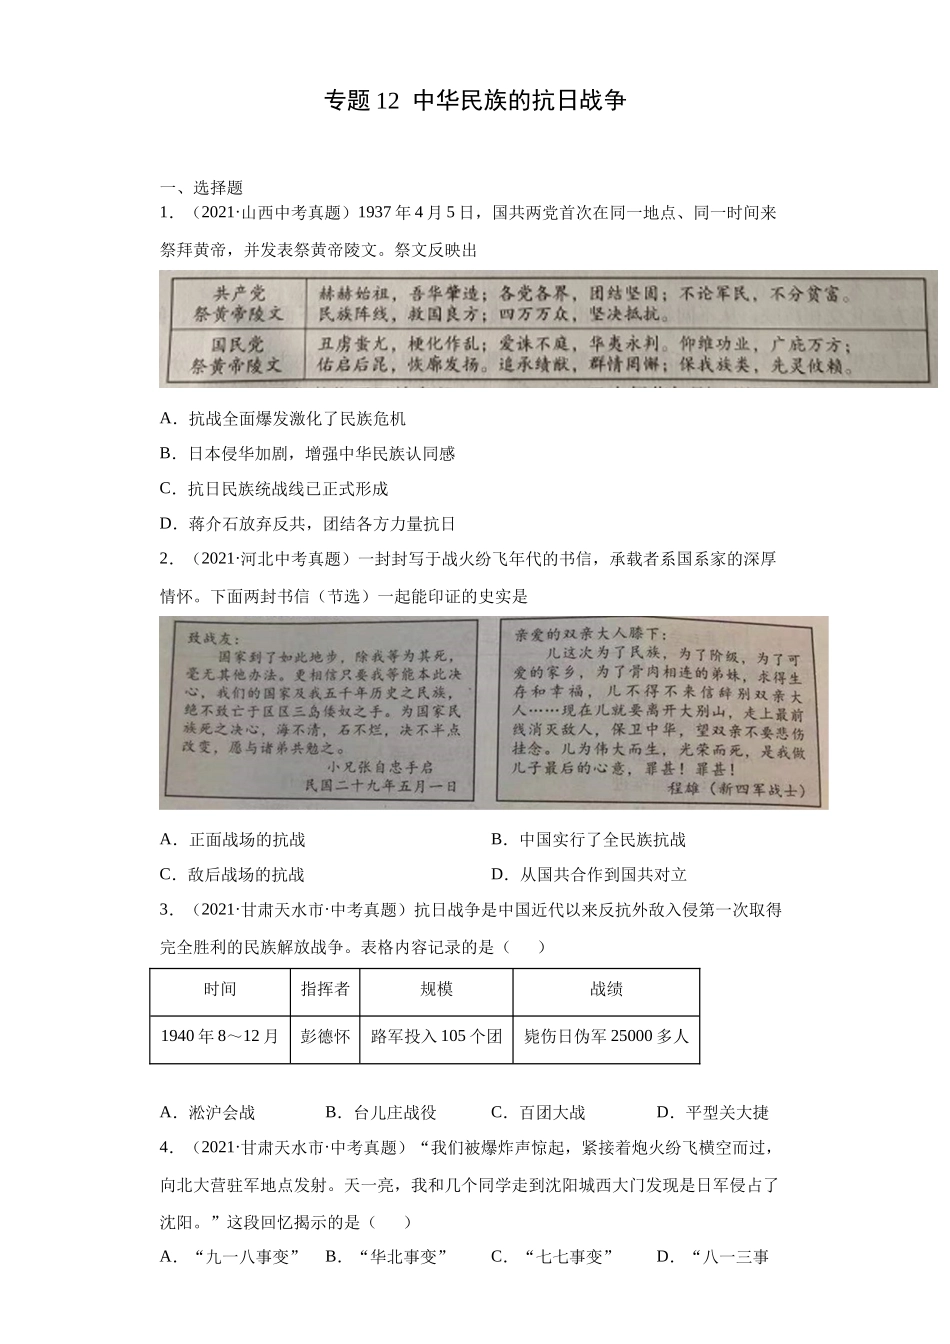 专题 12 中华民族的抗日战争
一、选择题
1．（2021·山西中考真题）1937 年 4 月 5 日，国共两党首次在同一地点、同一时间来
祭拜黄帝，并发表祭黄帝陵文。祭文反映出
共产党
祭黄帝陵文
赫赫始祖，吾华肇造；各党各界，团结坚固；不论军民，不分贫富。
民族阵线，救国良方；四万万众，坚决抵抗。
国民党
祭黄帝陵文
丑虏蚩尤，梗化作乱；爰诛不庭，华夷永判。仰维功业，广庇万方；
佑启后昆，恢廓发扬。追承绩猷，群情罔懈；保我族类，先灵攸赖。
A．抗战全面爆发激化了民族危机
B．日本侵华加剧，增强中华民族认同感
C．抗日民族统战线已正式形成
D．蒋介石放弃反共，团结各方力量抗日
2．（2021·河北中考真题）一封封写于战火纷飞年代的书信，承载者系国系家的深厚
情怀。下面两封书信（节选）一起能印证的史实是
致战友：
国家到了如此地步，除我等为其死，
毫无其他办法。更相信只要我等能本此决
心，我们的国家及我五千年历史之民族，
绝不致亡于区区三岛倭奴之手。为国家民
族死之决心，海不清，石不烂，决不半点
改变，愿与诸弟共勉之。
小兄张自忠手启
民国二十九年五月一日
亲爱的双亲大人膝下：
儿这次为了民族，为了阶级，为了可
爱的家乡，为了骨肉相连的弟妹，求得生
存和幸福，儿不得不来信辞别双亲大
人……现在儿就要离开大别山，走上最前
线消灭敌人，保卫中华，望双亲不要悲伤
挂念。儿为伟大而生，光荣而死，是我做
儿子最后的心意，罪甚！罪甚！
程雄（新四军战士）
A．正面战场的抗战 B．中国实行了全民族抗战
C．敌后战场的抗战 D．从国共合作到国共对立
3．（2021·甘肃天水市·中考真题）抗日战争是中国近代以来反抗外敌入侵第一次取得
完全胜利的民族解放战争。表格内容记录的是（ ）
时间 指挥者 规模 战绩
1940 年 8～12 月 彭德怀 路军投入 105 个团 毙伤日伪军 25000 多人
A．淞沪会战 B．台儿庄战役 C．百团大战 D．平型关大捷
4．（2021·甘肃天水市·中考真题）“我们被爆炸声惊起，紧接着炮火纷飞横空而过，
向北大营驻军地点发射。天一亮，我和几个同学走到沈阳城西大门发现是日军侵占了
沈阳。”这段回忆揭示的是（ ）
A．“九一八事变” B．“华北事变” C．“七七事变” D．“八一三事